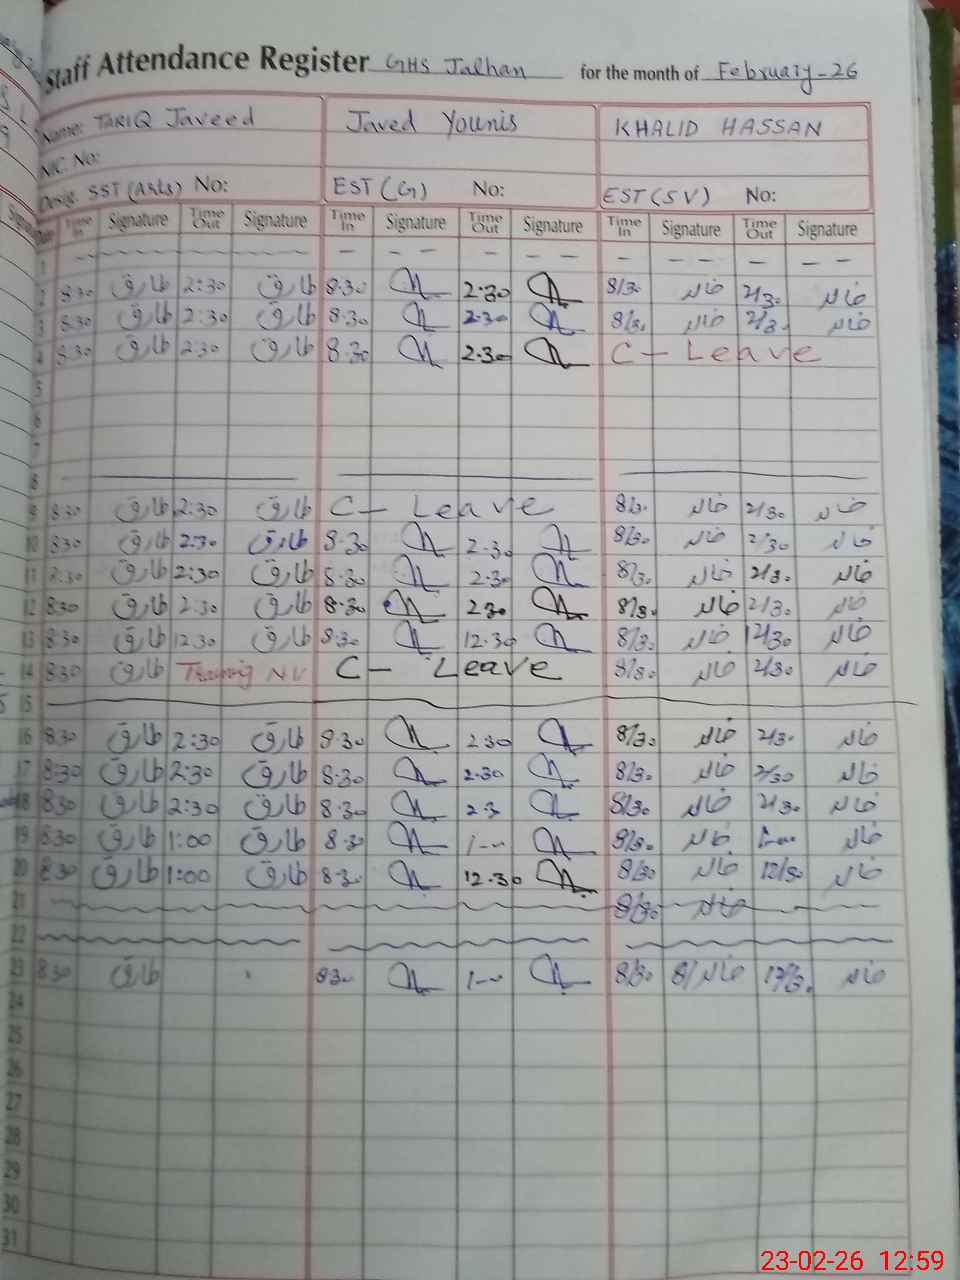 Staff Attendance Register GHS Jalhan for the month of February-26
Name: TARIQ Javeed Javed Younis KHALID HASSAN
NIC. No:
Desig. SST (Arts) No: EST (G) No: EST (SV) No:
Date Time In Signature Time Out Signature Time In Signature Time Out Signature Time In Signature Time Out Signature
1 - - - - - - - -
2 8:30 طارق 2:30 طارق 8.30 2.30 8/30 خالد 2/30 خالد
3 8:30 طارق 2:30 طارق 8.30 2.30 8/30 خالد 2/30 خالد
4 8:30 طارق 2:30 طارق 8.30 2.30 C - Leave
5
6
7
8
9 8:30 طارق 2:30 طارق C - Leave 8/30 خالد 2/30 خالد
10 8:30 طارق 2:30 طارق 8.30 2.30 8/30 خالد 2/30 خالد
11 طارق 2:30 طارق 8.30 2.30 8/30 خالد 2/30 خالد
12 8:30 طارق 2:30 طارق 8.30 2.30 8/30 خالد 2/30 خالد
13 8:30 طارق 12.30 طارق 8.30 12.30 8/30 خالد 12/30 خالد
14 8:30 طارق Training C - Leave 8/30 خالد 2/30 خالد
15
16 8:30 طارق 2:30 طارق 8.30 2.30 8/30 خالد 2/30 خالد
17 8:30 طارق 2:30 طارق 8.30 2.30 8/30 خالد 2/30 خالد
18 8:30 طارق 2:30 طارق 8.30 2.3 8/30 خالد 2/30 خالد
19 8:30 طارق 1:00 طارق 8.30 1-- 8/30 خالد خالد
20 8:30 طارق 1:00 طارق 8.30 12.30 8/30 خالد 12/30 خالد
21 8/30 خالد
22
23 8:30 طارق 8.30 1-- 8/30 خالد 12/30 خالد
24
25
26
27
28
29
30
31
23-02-26 12:59